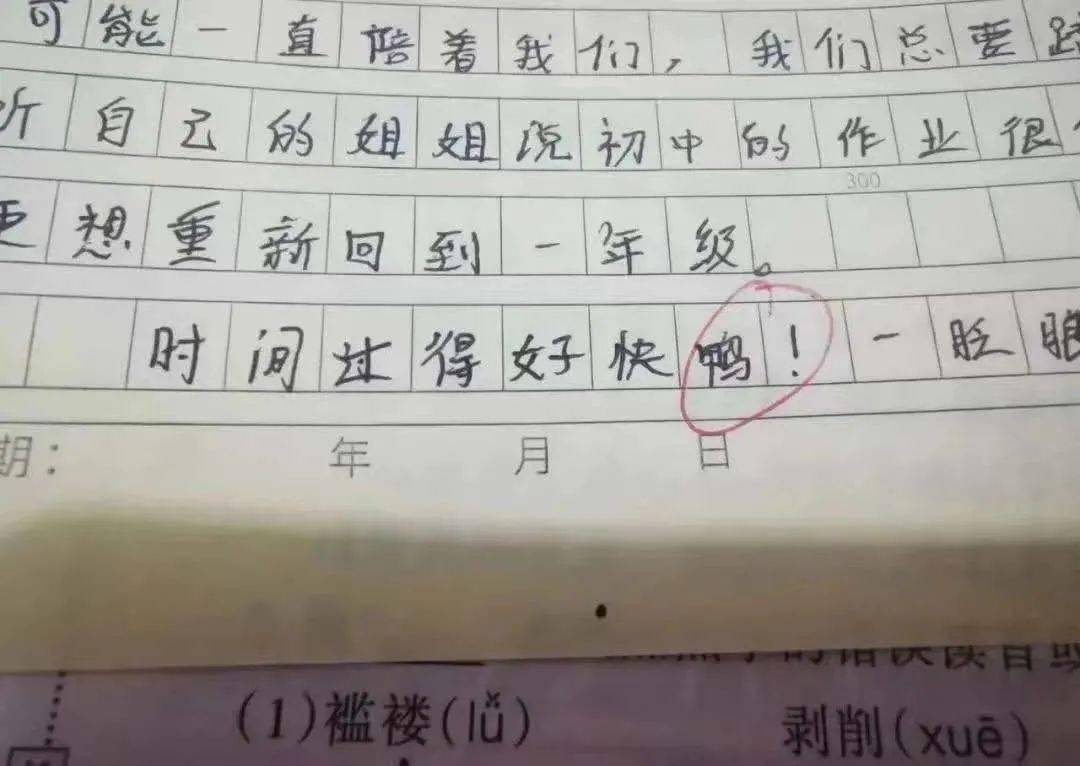 可能一直陪着我们，我们总要
听自己的姐姐说初中的作业很
300
更想重新回到一年级。
时间过得好快鸭！一眨眼
期： 年 月 日
(1)褴褛(lǚ) 剥削(xuē)